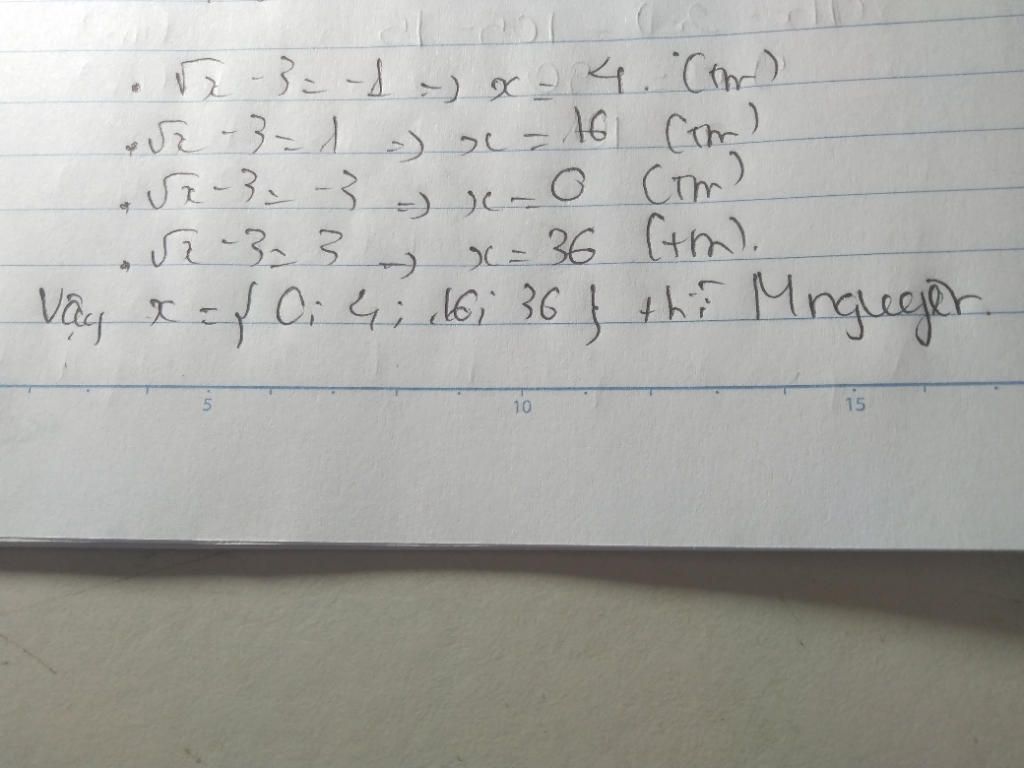 . √x - 3 = -1 => x = 4. (tm)
. √x - 3 = 1 => x = 16 (Tm)
. √x - 3 = -3 => x = 0 (Tm)
. √x - 3 = 3 => x = 36 (tm).
Vậy x = { 0; 4; 16; 36 } thì M nguyên.
5 10 15